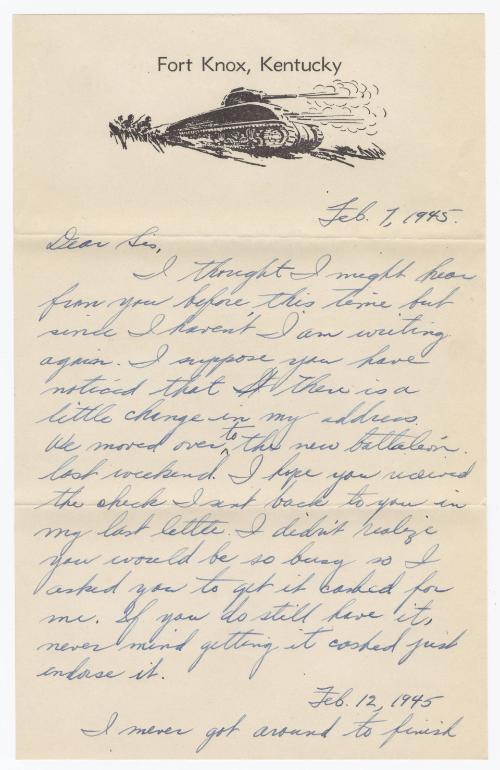 Fort Knox, Kentucky
Feb. 7, 1945.
Dear Sis,
I thought I might hear
from you before this time but
since I haven't I am writing
again. I suppose you have
noticed that there is a
little change in my address.
We moved over to the new battalion
last weekend. I hope you received
the check I sent back to you in
my last letter. I didn't realize
you would be so busy so I
asked you to get it cashed for
me. If you do still have it,
never mind getting it cashed just
endorse it.
Feb. 12, 1945
I never got around to finish